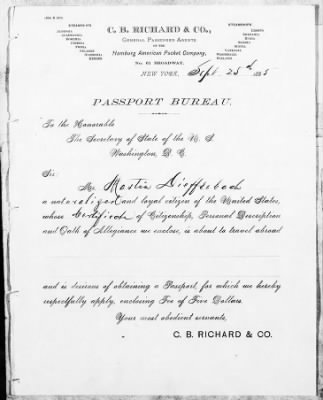 C. B. RICHARD & CO.,
GENERAL PASSENGER AGENTS
OF THE
Hamburg American Packet Company,
No. 61 BROADWAY.
NEW YORK, Sept. 25th 188
PASSPORT BUREAU.
To the Honorable
The Secretary of State of the U. S.
Washington, D. C.
Sir:
Mr. Martin Dieffenbach
a naturalized and loyal citizen of the United States,
whose Certificate of Citizenship, Personal Description
and Oath of Allegiance we enclose, is about to travel abroad
and is desirous of obtaining a Passport, for which we hereby
respectfully apply, enclosing Fee of Five Dollars.
Your most obedient servants,
C. B. RICHARD & CO.